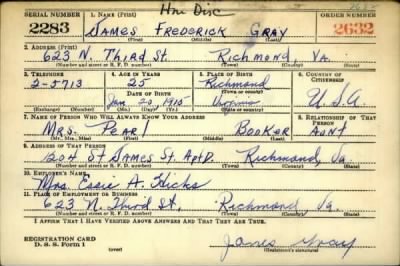 Hon Disc
SERIAL NUMBER 1. NAME (Print) ORDER NUMBER
2283 JAMES FREDERICK GRAY 2632
(First) (Middle) (Last)
2. ADDRESS (Print)
623 N. THIRD ST. RICHMOND, VA.
(Number and street or R. F. D. number) (Town) (County) (State)
3. TELEPHONE 4. AGE IN YEARS 5. PLACE OF BIRTH 6. COUNTRY OF CITIZENSHIP
2-5713 25 Richmond
DATE OF BIRTH (Town or county)
Jan 20, 1915 Virginia U.S.A.
(Exchange) (Number) (Mo.) (Day) (Yr.) (State or country)
7. NAME OF PERSON WHO WILL ALWAYS KNOW YOUR ADDRESS 8. RELATIONSHIP OF THAT PERSON
MRS. PEARL BOOKER AUNT
(Mr., Mrs., Miss) (First) (Middle) (Last)
9. ADDRESS OF THAT PERSON
1204 ST JAMES ST. APT D. Richmond, Va.
(Number and street or R. F. D. number) (Town) (County) (State)
10. EMPLOYER'S NAME
Mrs. Essie A. Hicks
11. PLACE OF EMPLOYMENT OR BUSINESS
623 N. Third St, Richmond Va.
(Number and street or R. F. D. number) (Town) (County) (State)
I AFFIRM THAT I HAVE VERIFIED ABOVE ANSWERS AND THAT THEY ARE TRUE.
REGISTRATION CARD
D. S. S. Form 1 (over) James Gray
(Registrant's signature)